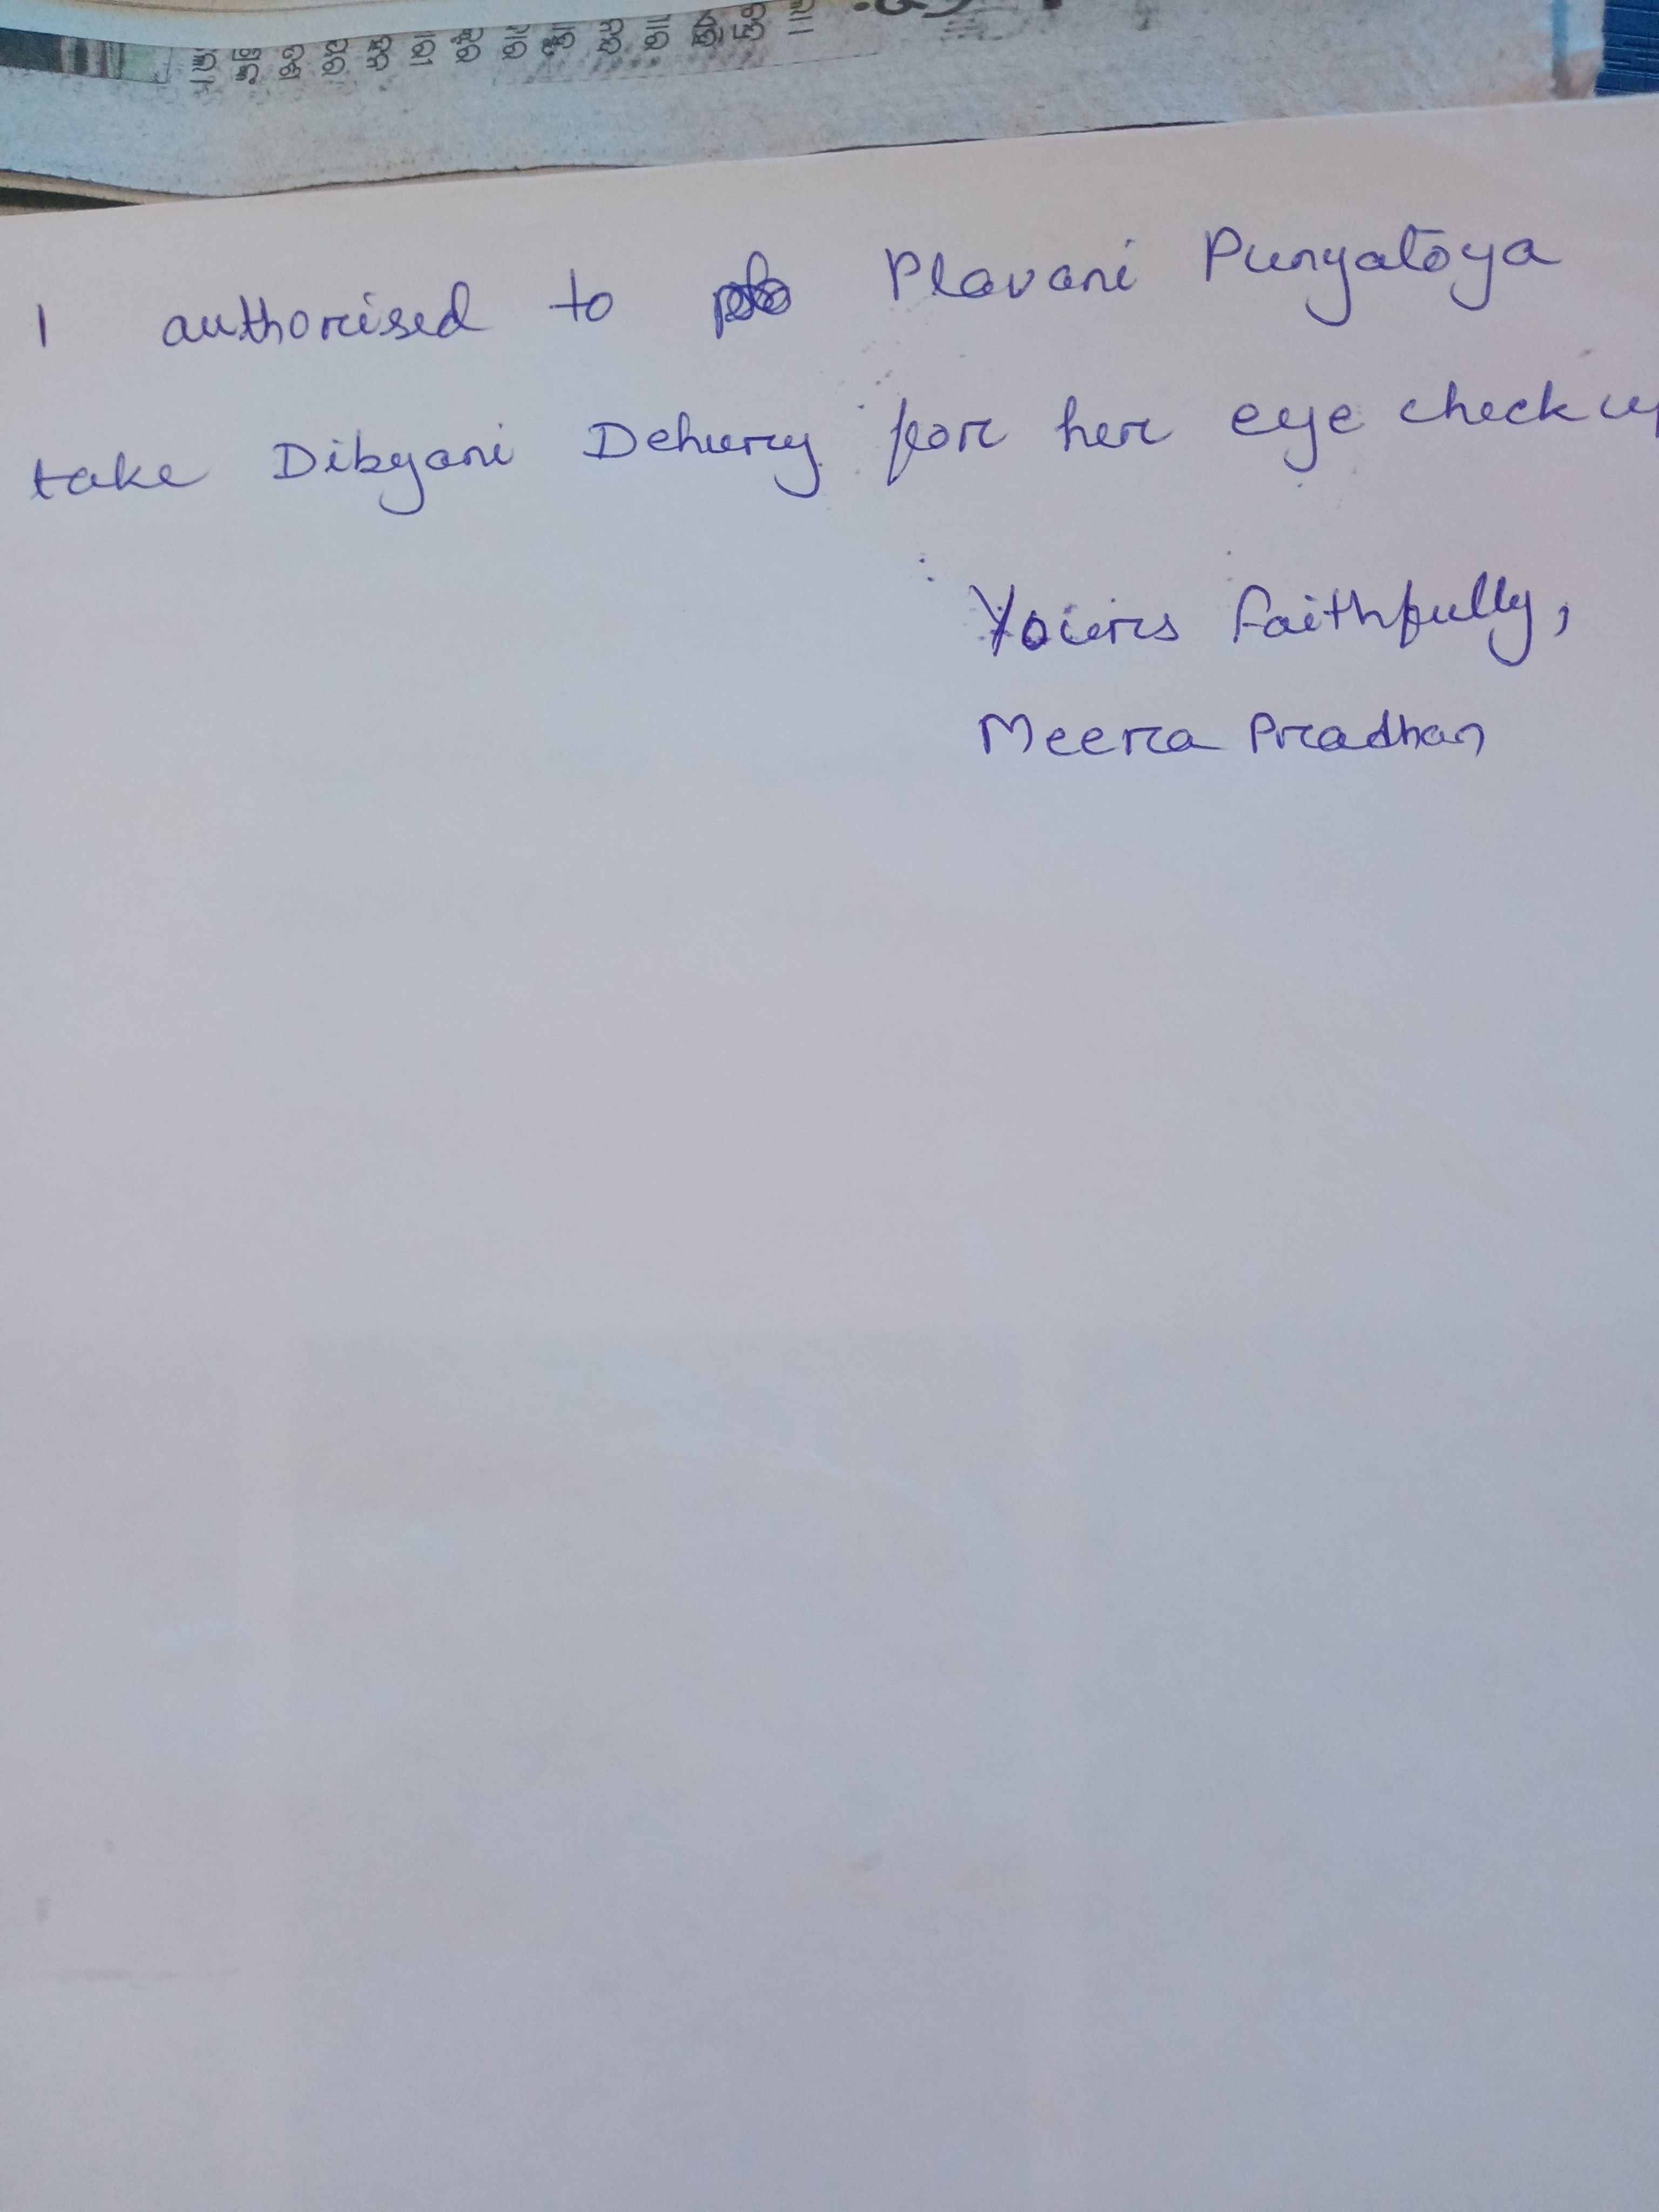 I authorised to Plavani Punyatoya
take Dibyani Dehury for her eye check up
Yours faithfully,
Meera Pradhan